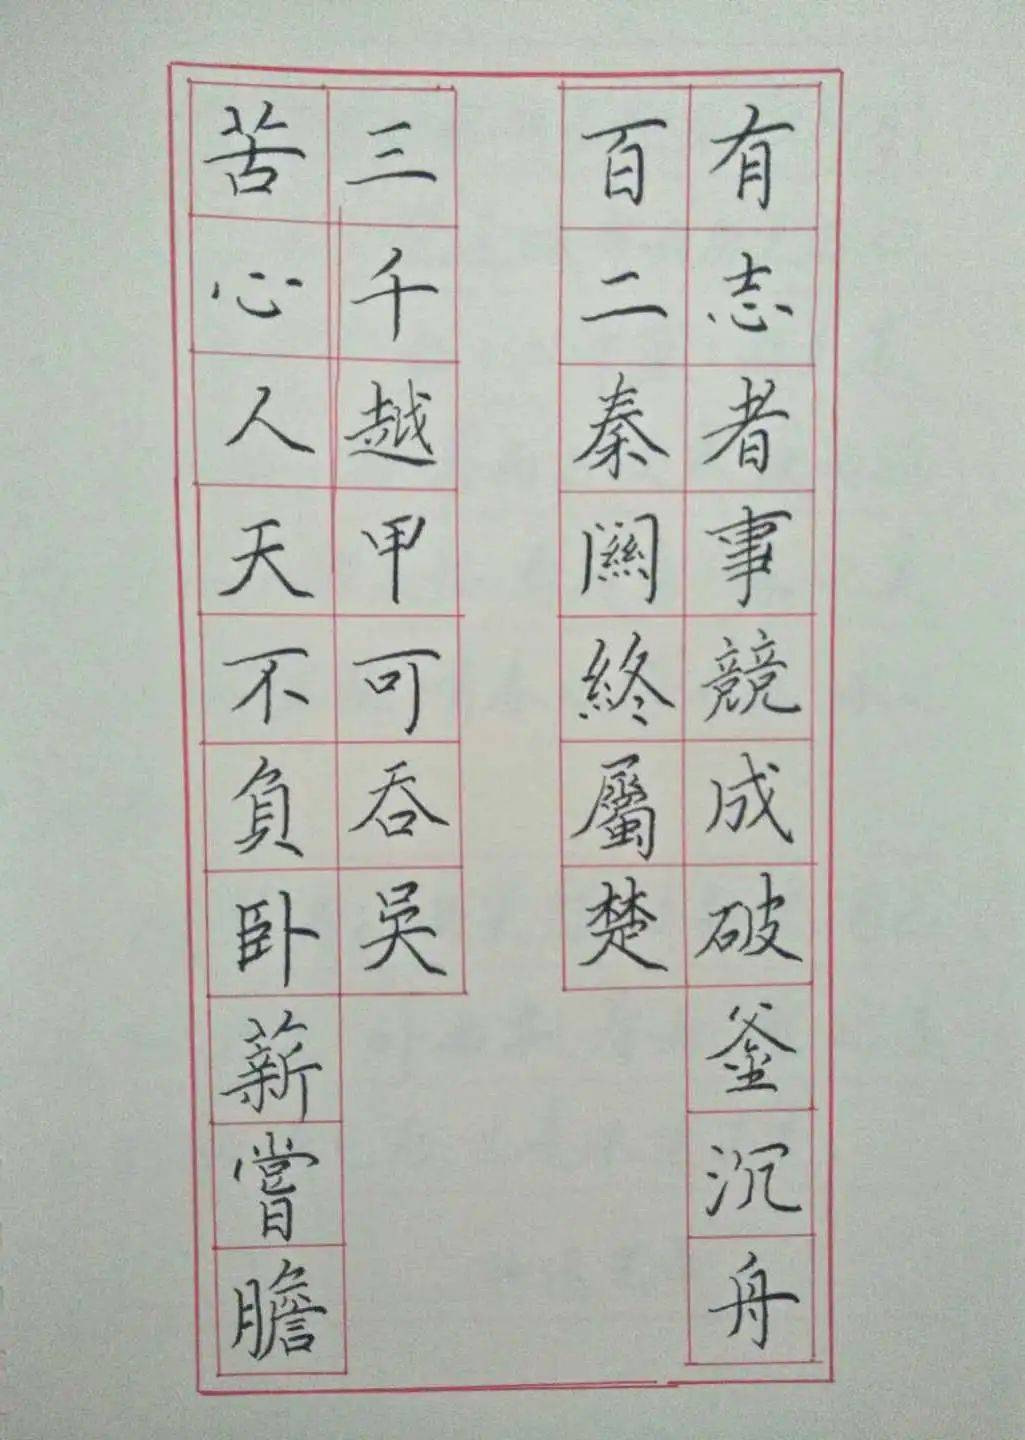 有志者事競成破釜沉舟
百二秦關終屬楚
苦心人天不負卧薪嘗膽
三千越甲可吞吳